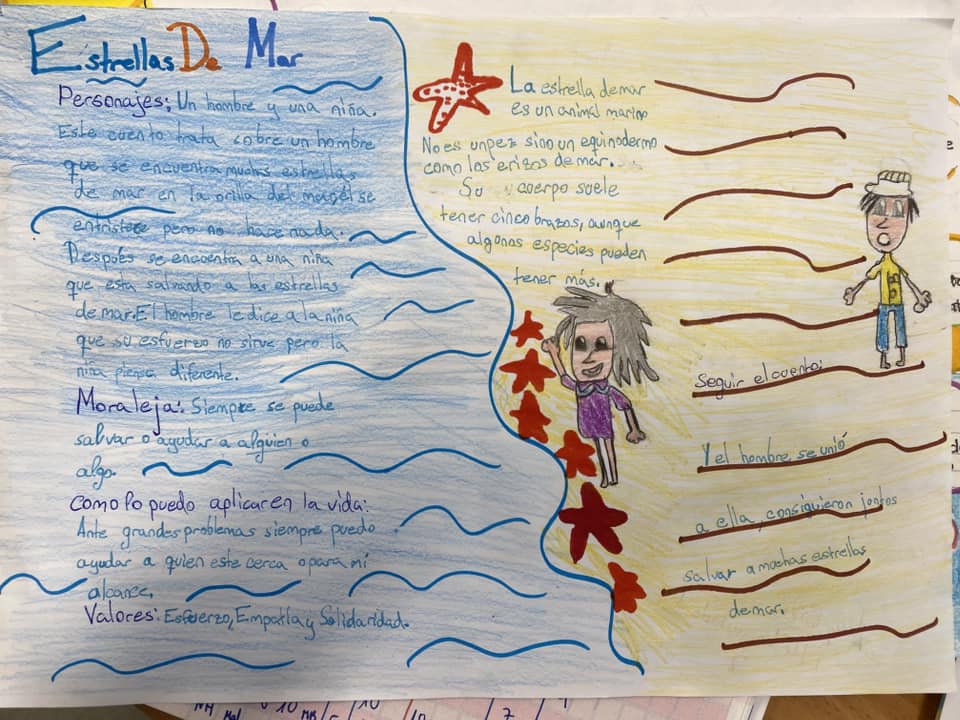 Estrellas De Mar
Personajes: Un hombre y una niña.
Este cuento trata sobre un hombre
que se encuentra muchas estrellas
de mar en la orilla del mar, él se
entristece pero no hace nada.
Después se encuentra a una niña
que esta salvando a las estrellas
de mar. El hombre le dice a la niña
que su esfuerzo no sirve pero la
niña piensa diferente.
Moraleja: Siempre se puede
salvar o ayudar a alguien o
algo.
Como lo puedo aplicar en la vida:
Ante grandes problemas siempre puedo
ayudar a quien este cerca o para mi
alcance.
Valores: Esfuerzo, Empatía y Solidaridad.
La estrella de mar
es un animal marino
No es un pez sino un equinodermo
como los erizos de mar.
Su cuerpo suele
tener cinco brazos, aunque
algunas especies pueden
tener más.
Seguir el cuento:
Y el hombre se unió
a ella, consiguieron juntos
salvar a muchas estrellas
de mar.